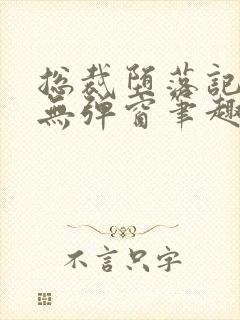 总裁堕落記
無弹窗笔趣
不言只字